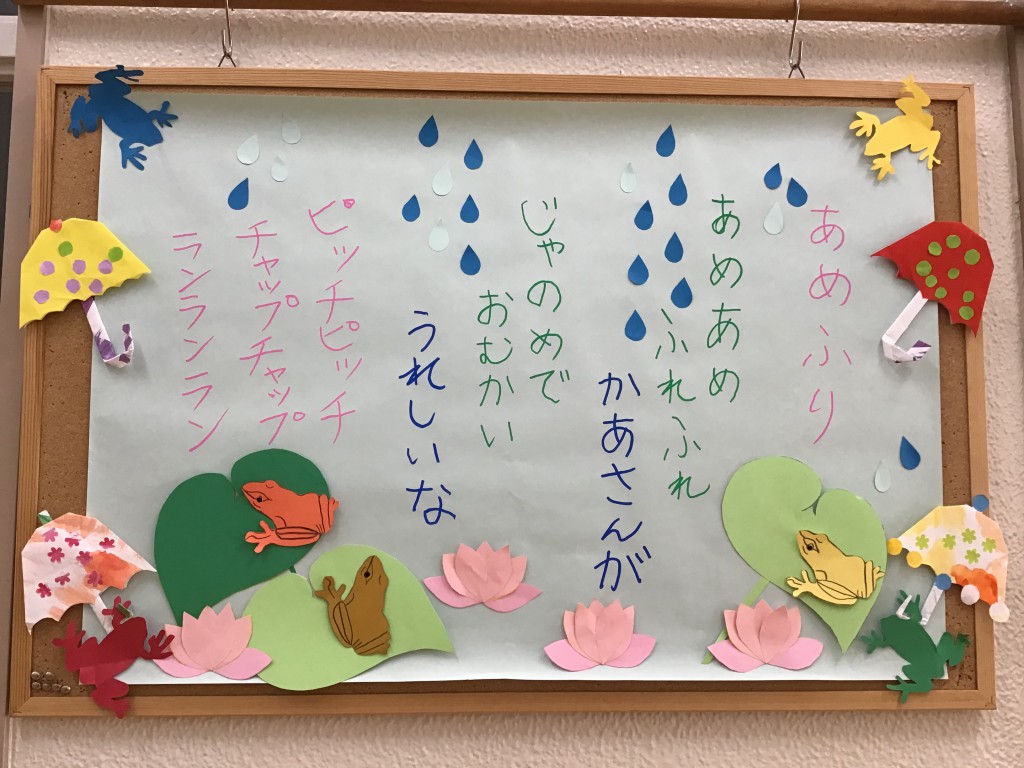 あめふり
あめあめ
ふれふれ
かあさんが
じゃのめで
おむかい
うれしいな
ピッチピッチ
チャップチャップ
ランランラン